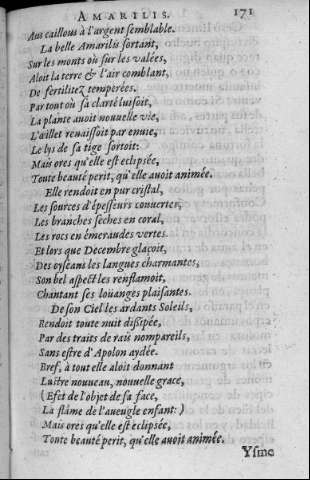 AMARILIS. 171
Aus caillous à l'argent semblable.
La belle Amarilis sortant,
Sur les monts où sur les valées,
Aloit la terre & l'air comblant,
De fertilitez temperées.
Par tout où sa clarté luisoit,
La plante avoit nouvelle vie,
L'œillet renaissoit par enuie,
Le lys de sa tige sortoit:
Mais ores qu'elle est eclipsée,
Toute beauté perit, qu'elle avoit animée.
Elle rendoit en pur cristal,
Les sources d'épesseurs couuertes,
Les branches seches en coral,
Les rocs en émeraudes vertes.
Et lors que Decembre glaçoit,
Des oyseaus les langues charmantes,
Son bel aspect les renflamoit,
Chantant ses loüanges plaisantes.
De son Ciel les ardants Soleils,
Rendoit toute nuit dissipée,
Par des traits de rais nompareils,
Sans estre d'Apolon aydée.
Bref, à tout elle aloit donnant
Lustre nouveau, nouvelle grace,
(Efet de l'objet de sa face,
La flâme de l'aueugle enfant:)
Mais ores qu'elle est eclipsée,
Toute beauté perit, qu'elle avoit animée.
Ysme